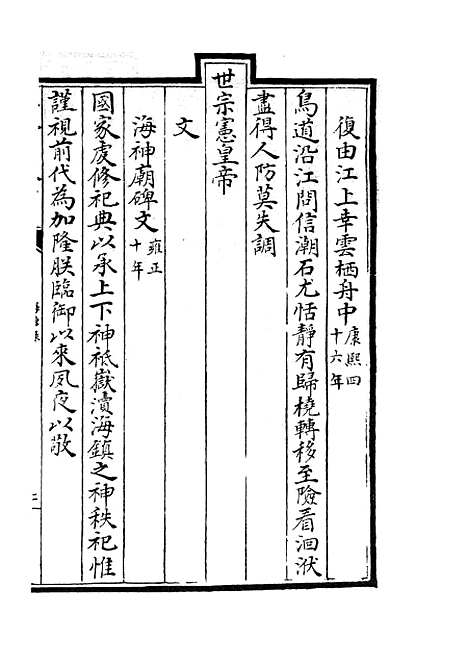 復由江上幸雲栖舟中康熙四十六年
鳥道沿江問信潮石尤恬靜有歸橈轉移至險看洄洑
盡得人防莫失調
世宗憲皇帝
文
海神廟碑文雍正十年
國家虔修祀典以承上下神祇嶽瀆海鎮之神秩祀惟
謹視前代為加隆朕臨御以來夙夜以敬